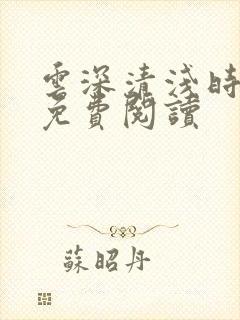 雲深清淺時
免費閱讀
蘇昭丹